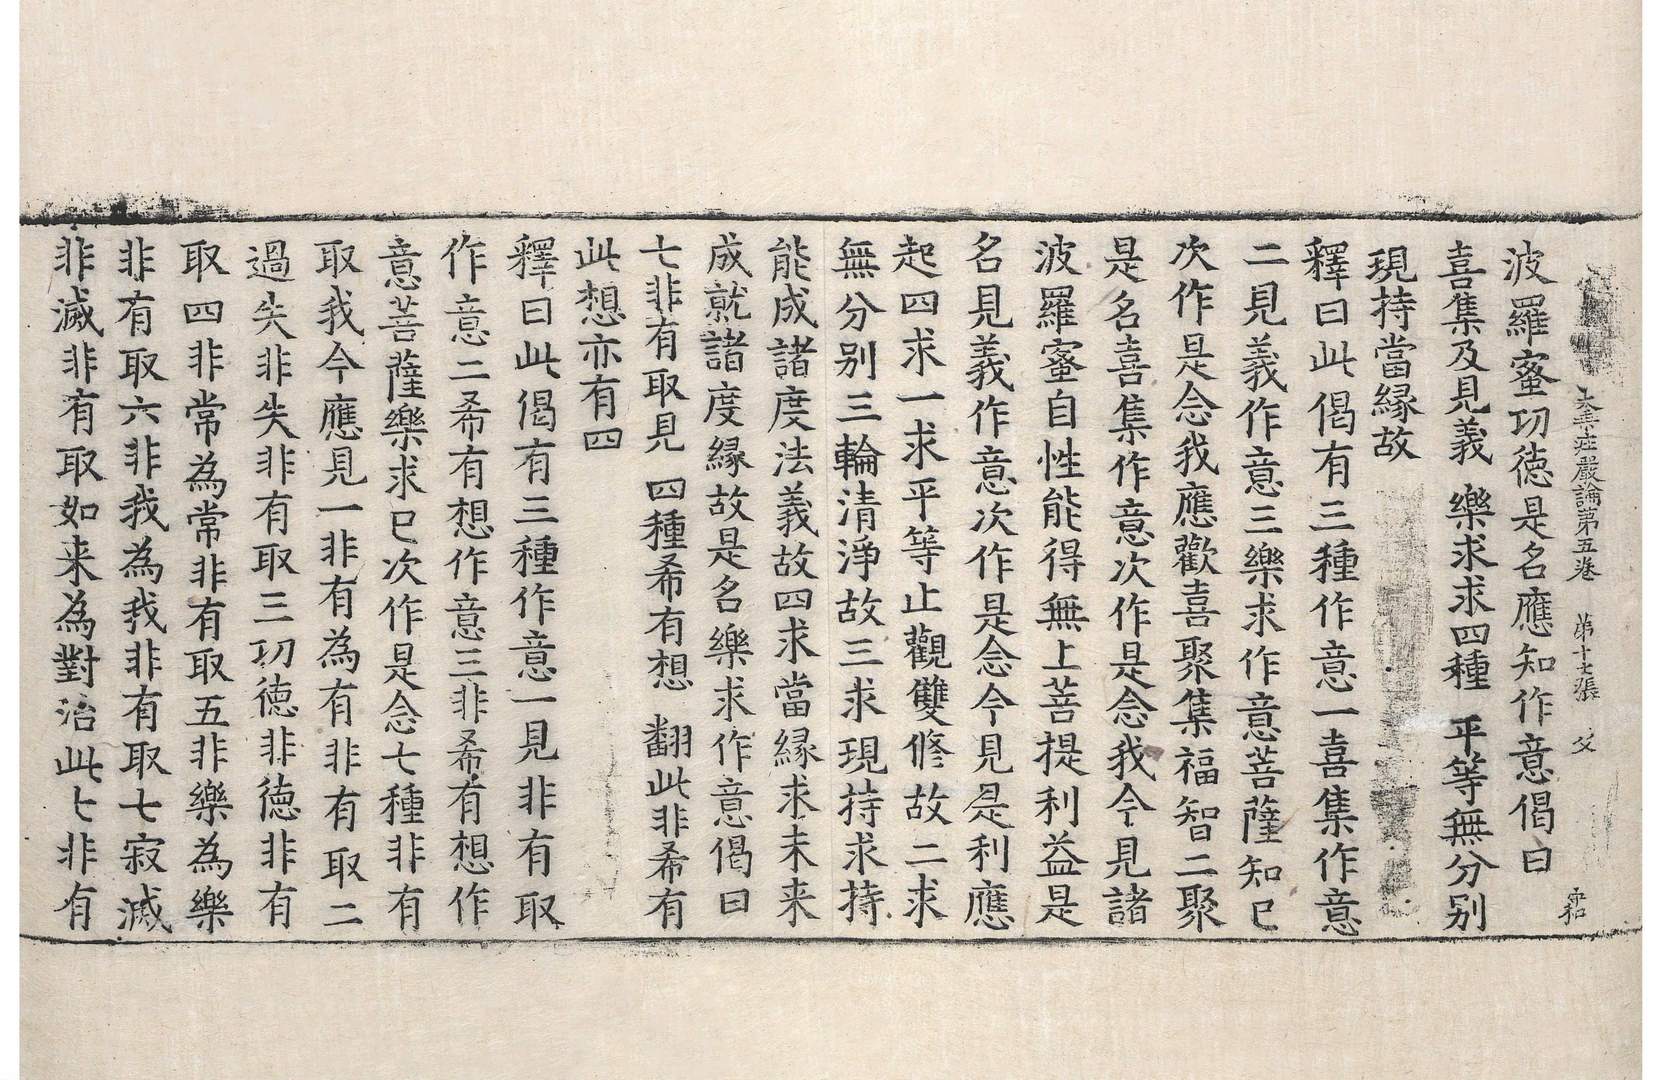 大乗庄嚴論第五卷 第十七張 父 和
波羅蜜功德是名應知作意偈曰
喜集及見義 樂求求四種 平等無分别
現持當縁故
釋曰此偈有三種作意一喜集作意
二見義作意三樂求作意菩薩知已
次作是念我應歡喜聚集福智二聚
是名喜集作意次作是念我今見諸
波羅蜜自性能得無上菩提利益是
名見義作意次作是念今見是利應
起四求一求平等止觀雙修故二求
無分别三輪清淨故三求現持求持
能成諸度法義故四求當縁求未来
成就諸度縁故是名樂求作意偈曰
七非有取見 四種希有想 翻此非希有
此想亦有四
釋曰此偈有三種作意一見非有取
作意二希有想作意三非希有想作
意菩薩樂求已次作是念七種非有
取我今應見一非有為有非有取二
過失非失非有取三功德非德非有
取四非常為常非有取五非樂為樂
非有取六非我為我非有取七寂滅
非滅非有取如来為對治此七非有